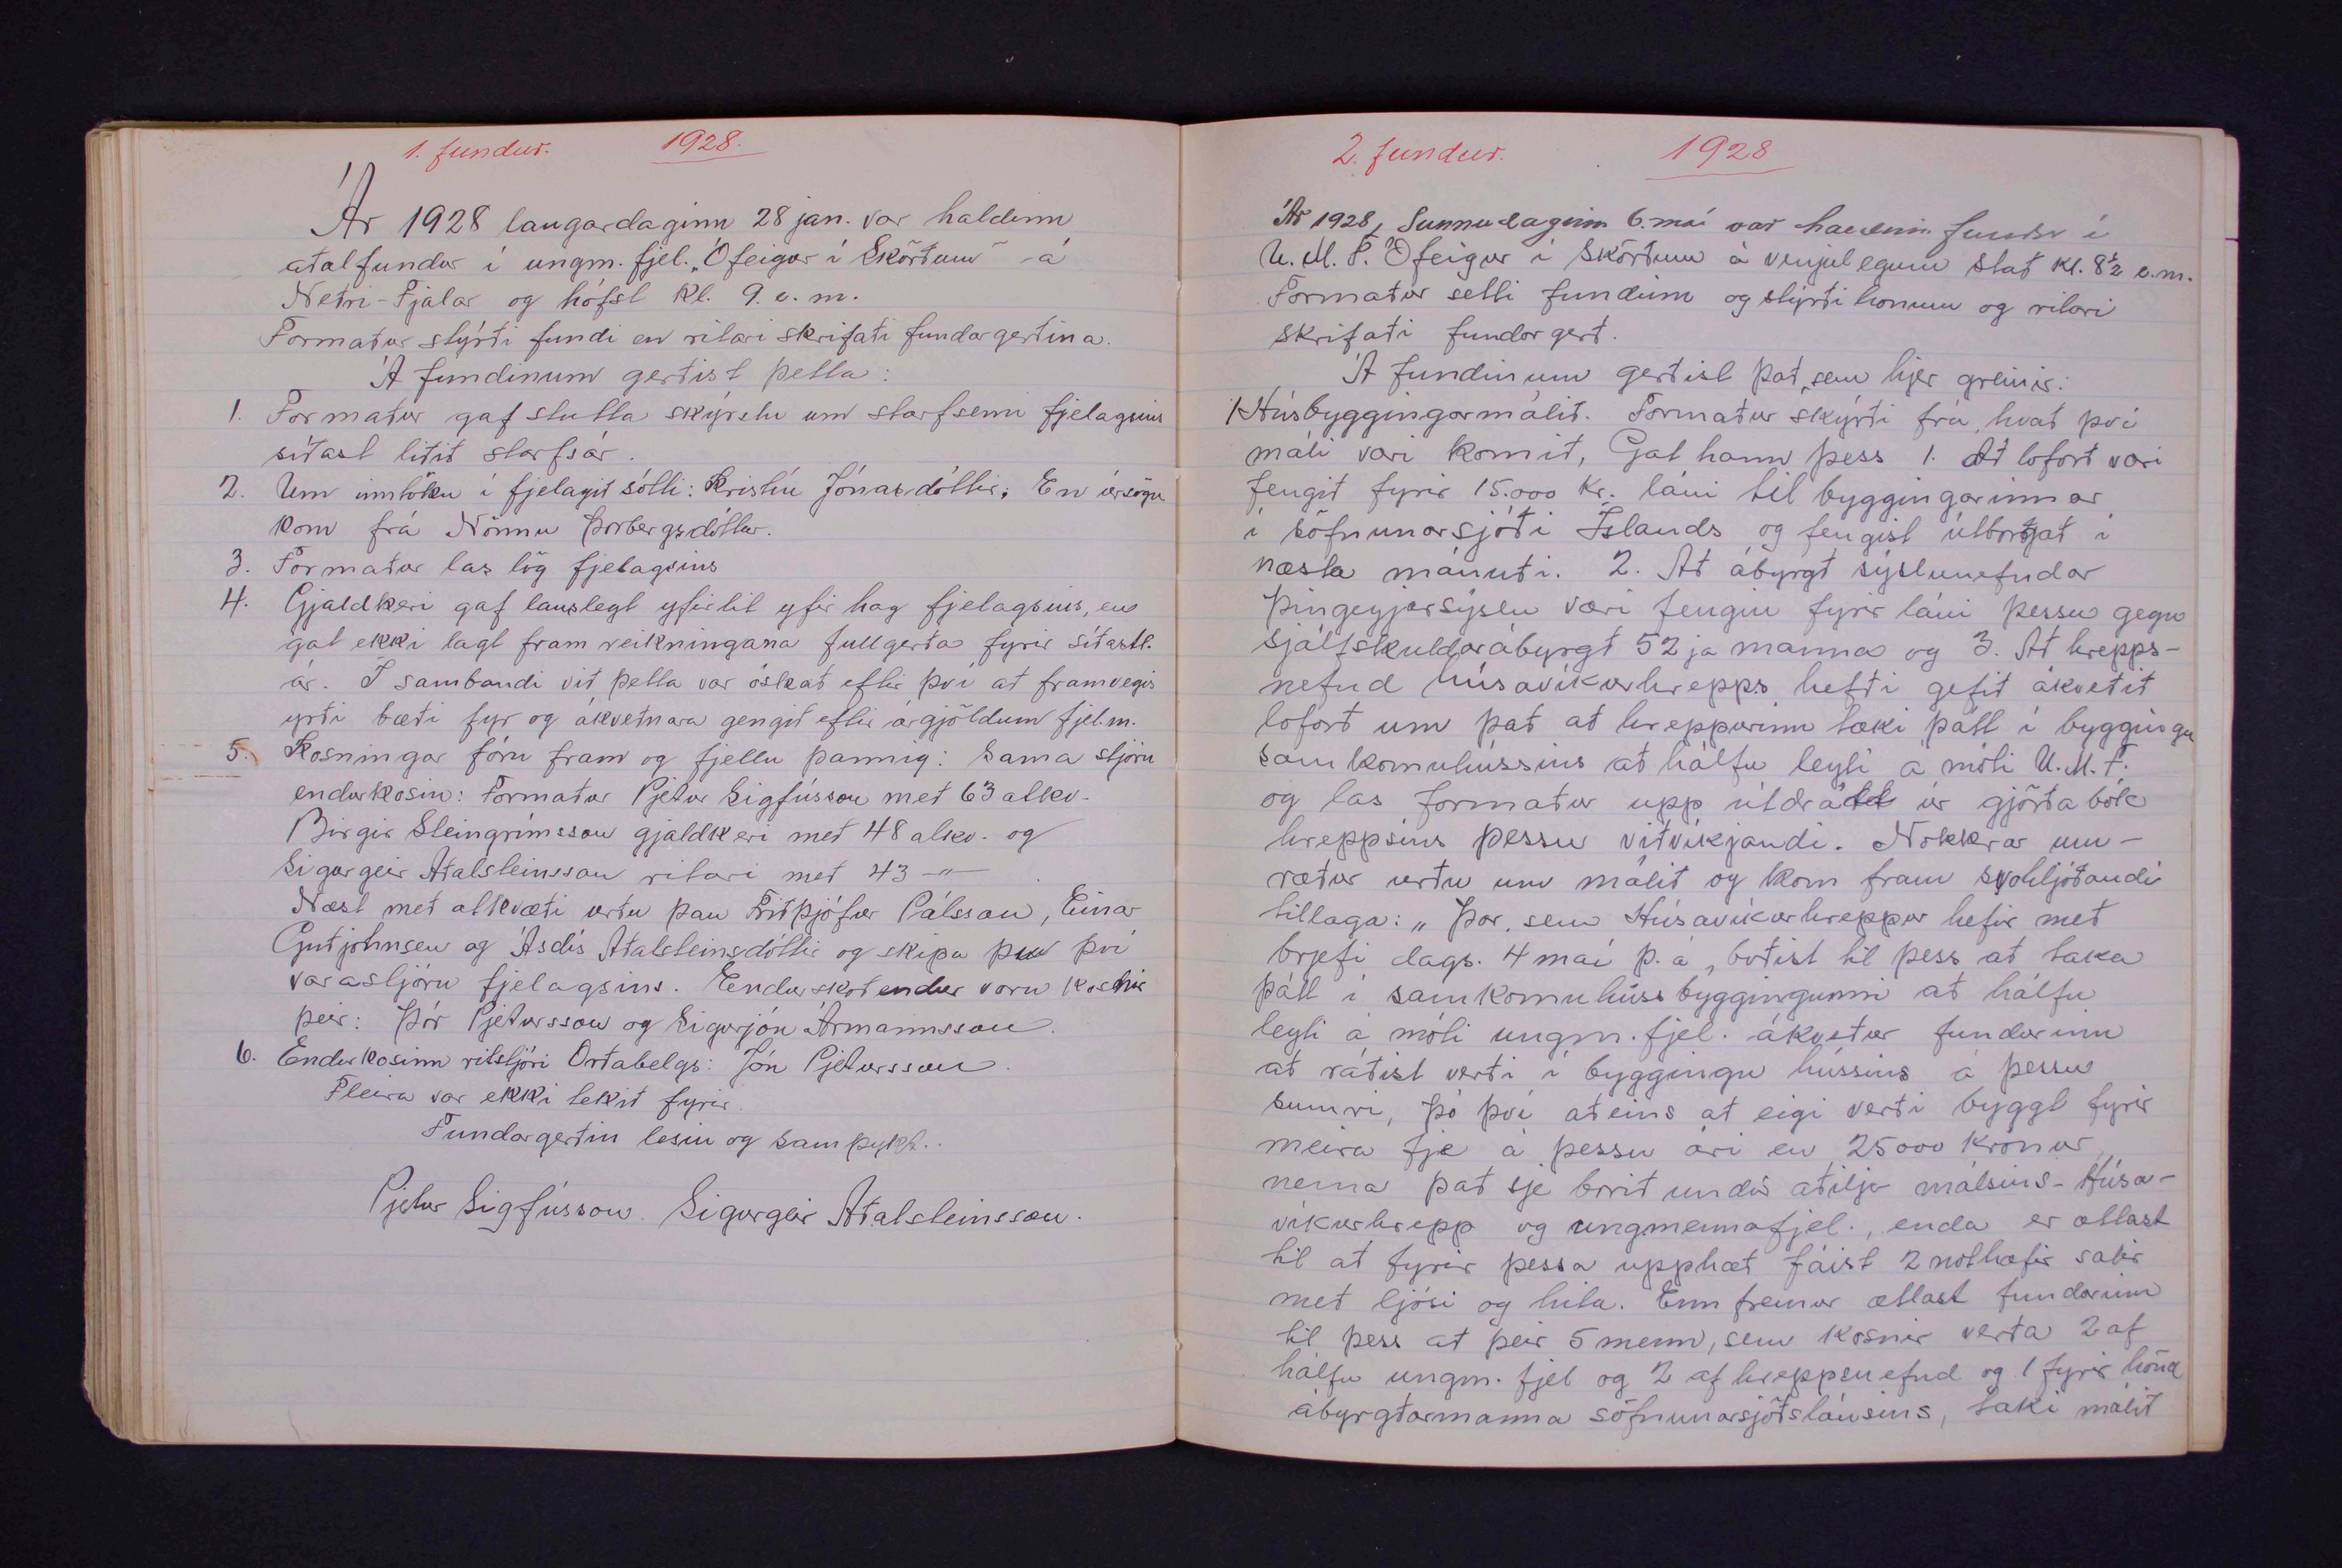 1. fundur. 1928.
Ár 1928 laugardaginn 28 jan. var haldinn
aðalfundur í ungm. fjel. „Ófeigur í Skörðum“ á
Neðri-Fjalar og hófst kl. 9. e. m.
Formaður stýrði fundi en ritari skrifaði fundargerðina.
Á fundinum gerðist þetta:
1. Formaður gaf stutta skýrslu um starfsemi fjelagsins
síðast liðið starfsár.
2. Um inntöku í fjelagið sótti: Kristín Jónasdóttir. En úrsögn
kom frá Nönnu Þorbergsdóttur.
3. Formaður las lög fjelagsins
4. Gjaldkeri gaf lauslegt yfirlit yfir hag fjelagsins, en
gat ekki lagt fram reikningana fullgerða fyrir síðastl.
ár. Í sambandi við þetta var óskað eftir því að framvegis
yrði bæði fyr og ákveðnara gengið eftir árgjöldum fjel.m.
5. Kosningar fóru fram og fjellu þannig: Sama stjórn
endurkosin: Formaður Pjetur Sigfússon með 63 atkv.
Birgir Steingrímsson gjaldkeri með 48 atkv. og
Sigurgeir Aðalsteinsson ritari með 43 –"–
Næst með atkvæði urðu þau Friðþjófur Pálsson, Einar
Guðjohnsen og Ásdís Aðalsteinsdóttir og skipa þau því
varastjórn fjelagsins. Endurskoðendur voru kosnir
þeir: Þór Pjetursson og Sigurjón Ármannsson.
6. Endurkosinn ritstjóri Orðabelgs: Jón Pjetursson.
Fleira var ekki tekið fyrir.
Fundargerðin lesin og samþykt.
Pjetur Sigfússon. Sigurgeir Aðalsteinsson.
2. fundur. 1928
Ár 1928, Sunnudaginn 6. maí var haldinn fundur í
U. M. F. Ófeigur í Skörðum á venjulegum stað kl. 8½ e.m.
Formaður setti fundinn og stýrði honum og ritari
skrifaði fundargerð.
Á fundinum gerðist það, sem hjer greinir:
1 Húsbyggingarmálið. Formaður skýrði frá, hvað því
máli væri komið, Gat hann þess 1. Að loforð væri
fengið fyrir 15.000 kr. láni til byggingarinnar
í söfnunarsjóði Íslands og fengist útborgað í
næsta mánuði. 2. Að ábyrgð sýslunefndar
Þingeyjarsýslu væri fengin fyrir láni þessu gegn
sjálfskuldarábyrgð 52ja manna og 3. Að hrepps-
nefnd Húsavíkurhrepps hefði gefið ákveðið
loforð um það að hreppurinn tæki þátt í byggingu
samkomuhússins að hálfu leyti á móti U. M. F.
og las formaður upp útdrátt úr gjörðabók
hreppsins þessu viðvíkjandi. Nokkrar um-
ræður urðu um málið og kom fram svohljóðandi
tillaga: „Þar, sem Húsavíkurhreppur hefir með
brjefi dags. 4 maí þ. á, boðist til þess að taka
þátt í samkomuhússbyggingunni að hálfu
leyti á móti ungm. fjel. ákveður fundurinn
að ráðist verði í byggingu hússins á þessu
sumri, þó því aðeins að eigi verði byggt fyrir
meira fje á þessu ári en 25000 krónur,
nema það sje borið undir aðilja málsins – Húsa-
víkurhrepp og ungmennafjel., enda er ætlast
til að fyrir þessa upphæð fáist 2 nothæfir salir
með ljósi og hita. Enn fremur ætlast fundurinn
til þess að þeir 5 menn, sem kosnir verða 2 af
hálfu ungm. fjel og 2 af hreppsnefnd og 1 fyrir hönd
ábyrgðarmanna söfnunarsjóðslánsins, taki málið